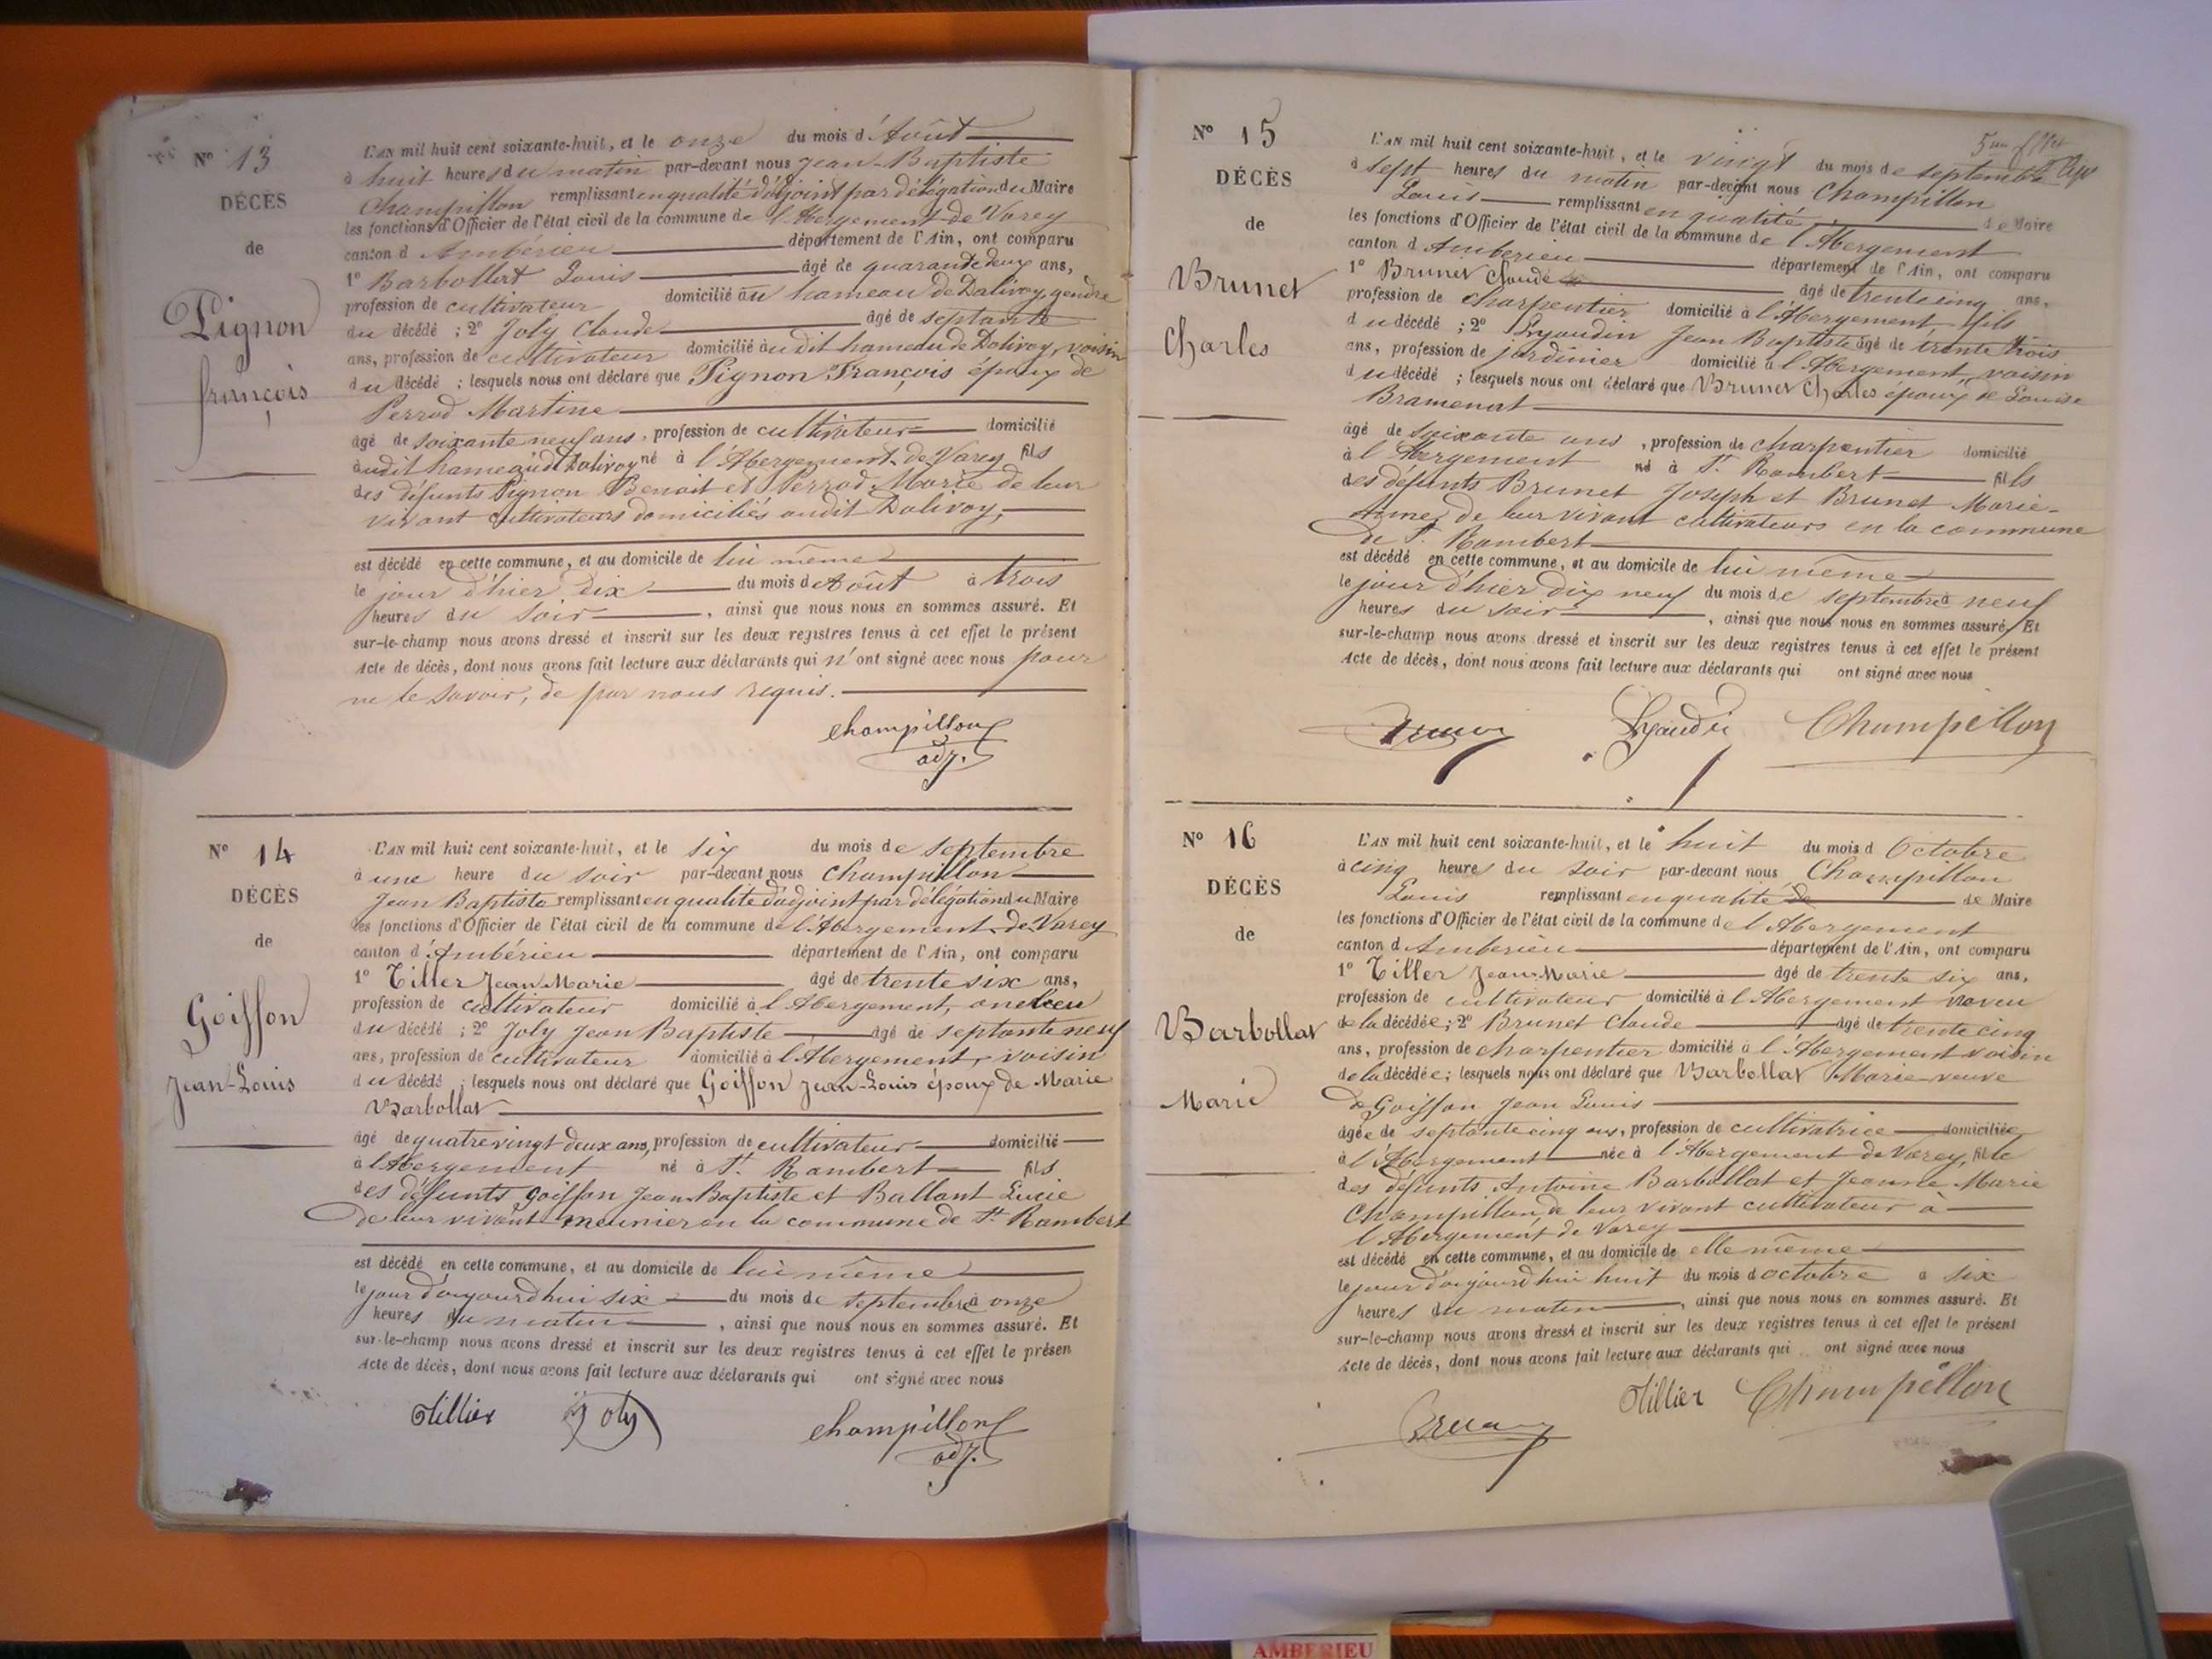 N° 13
DÉCÈS
de
Pignon
françois
L'AN mil huit cent soixante-huit, et le onze du mois d'Août
à huit heures du matin par-devant nous Jean-Baptiste
Champillon remplissant en qualité d'adjoint par délégation du Maire
les fonctions d'Officier de l'état civil de la commune de l'Abergement de Varey
canton d Ambérieu département de l'Ain, ont comparu
1° Barbollat Louis âgé de quarante deux ans,
profession de cultivateur domicilié au hameau de Dalivoy, gendre
du décédé ; 2° Joly Claude âgé de septante
ans, profession de cultivateur domicilié audit hameau de Dalivoy, voisin
du décédé ; lesquels nous ont déclaré que Pignon François époux de
Perrod Martine
âgé de soixante neuf ans, profession de cultivateur domicilié
audit hameau de Dalivoy né à l'Abergement de Varey fils
des défunts Pignon Benoit et Perrod Marie de leur
vivant cultivateurs domiciliés audit Dalivoy,
est décédé en cette commune, et au domicile de lui même
le jour d'hier dix du mois d'Août à trois
heures du soir, ainsi que nous nous en sommes assuré. Et
sur-le-champ nous avons dressé et inscrit sur les deux registres tenus à cet effet le présent
Acte de décès, dont nous avons fait lecture aux déclarants qui n'ont signé avec nous pour
ne le savoir, de par nous requis.
Champillon
adj.
N° 14
DÉCÈS
de
Goiffon
Jean-Louis
L'AN mil huit cent soixante-huit, et le six du mois de septembre
à une heure du soir par-devant nous Champillon
Jean Baptiste remplissant en qualité d'adjoint par délégation du Maire
les fonctions d'Officier de l'état civil de la commune de l'Abergement de Varey
canton d'Ambérieu département de l'Ain, ont comparu
1° Tiller Jean Marie âgé de trente six ans,
profession de cultivateur domicilié à l'Abergement,
du décédé ; 2° Joly Jean Baptiste âgé de septante neuf
ans, profession de cultivateur domicilié à l'Abergement, voisin
du décédé ; lesquels nous ont déclaré que Goiffon Jean-Louis époux de Marie
Barbollat
âgé de quatre vingt deux ans, profession de cultivateur domicilié
à l'Abergement né à St. Rambert fils
des défunts Goiffon Jean Baptiste et Ballant Lucie
de leur vivant meunier en la commune de St. Rambert
est décédé en cette commune, et au domicile de lui même
le jour d'aujourd'hui six du mois de septembre à onze
heures du matin, ainsi que nous nous en sommes assuré. Et
sur-le-champ nous avons dressé et inscrit sur les deux registres tenus à cet effet le présen
Acte de décès, dont nous avons fait lecture aux déclarants qui ont signé avec nous
Tillier Joly Champillon
adj.
N° 15
DÉCÈS
de
Brunet
Charles
L'AN mil huit cent soixante-huit, et le vingt du mois de septembre
à sept heures du matin par-devant nous Champillon
Louis remplissant en qualité de Maire
les fonctions d'Officier de l'état civil de la commune de l'Abergement
canton d Amberieu département de l'Ain, ont comparu
1° Brunet Claude âgé de trente cinq ans,
profession de charpentier domicilié à l'Abergement fils
du décédé ; 2° Jean Baptiste âgé de trente trois
ans, profession de jardinier domicilié à l'Abergement, voisin
du décédé ; lesquels nous ont déclaré que Brunet Charles époux de Louise
Bramenat
âgé de soixante ans, profession de charpentier domicilié
à l'Abergement né à St. Rambert fils
des défunts Brunet Joseph et Brunet Marie-
Anne, de leur vivant cultivateurs en la commune
de St. Rambert
est décédé en cette commune, et au domicile de lui même
le jour d'hier dix neuf du mois de septembre à neuf
heures du soir, ainsi que nous nous en sommes assuré. Et
sur-le-champ nous avons dressé et inscrit sur les deux registres tenus à cet effet le présent
Acte de décès, dont nous avons fait lecture aux déclarants qui ont signé avec nous
Champillon
N° 16
DÉCÈS
de
Barbollat
Marie
L'AN mil huit cent soixante-huit, et le huit du mois d Octobre
à cinq heures du soir par-devant nous Champillon
Louis remplissant en qualité de de Maire
les fonctions d'Officier de l'état civil de la commune de l'Abergement
canton d Amberieu département de l'Ain, ont comparu
1° Tiller Jean Marie âgé de trente six ans,
profession de cultivateur domicilié à l'Abergement neveu
de la décédée ; 2° Brunet Claude âgé de trente cinq
ans, profession de charpentier domicilié à l'Abergement voisin
de la décédée ; lesquels nous ont déclaré que Barbollat Marie veuve
de Goiffon Jean Louis
âgée de septante cinq ans, profession de cultivatrice domiciliée
à l'Abergement née à l'Abergement de Varey, fille
des défunts Antoine Barbollat et Jeanne Marie
Champillon, de leur vivant cultivateur à
l'Abergement de Varey
est décédé en cette commune, et au domicile de elle même
le jour d'aujourd'hui huit du mois d octobre à six
heures du matin, ainsi que nous nous en sommes assuré. Et
sur-le-champ nous avons dressé et inscrit sur les deux registres tenus à cet effet le présent
Acte de décès, dont nous avons fait lecture aux déclarants qui ont signé avec nous
Tillier Champillon
AMBERIEU